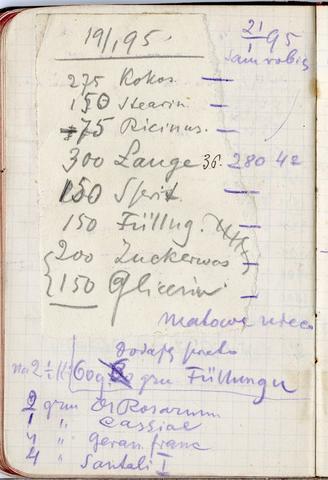 19/1 95.
21/1 95
Sam robię
275 Kokos —
150 Stearin. —
75 Ricinus. —
300 Lauge 36. 280 42
150 Sprit —
150 Füllng.
200 Zuckerwas —
150 Glicerin —
matowe nieco
Dodaję preto
na 2½ Kl 60 gru Füllungu
2 gru Ol Rosarum
1 " Cassiae
4 " geran. franc
4 " Santali I